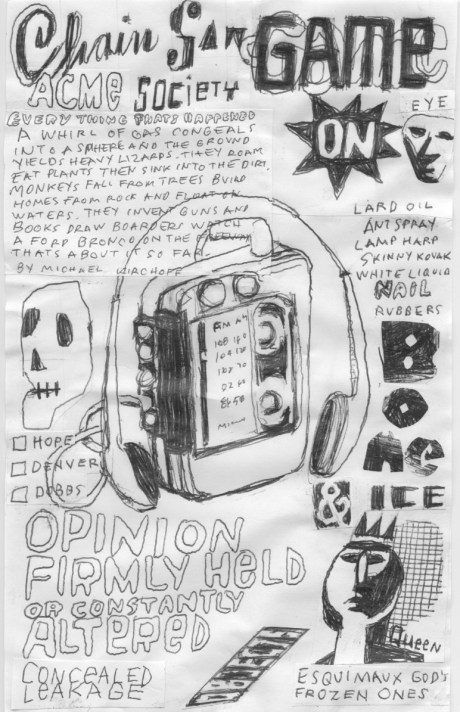 Chain Saw GAME
ACME SOCIETY
ON
EYE
EVERY THING THATS HAPPENED
A WHIRL OF GAS CONGEALS
INTO A SPHERE AND THE GROUND
YIELDS HEAVY LIZARDS. THEY ROAM
EAT PLANTS THEN SINK INTO THE DIRT.
MONKEYS FALL FROM TREES BUILD
HOMES FROM ROCK AND FLOAT ON
WATERS. THEY INVENT GUNS AND
BOOKS DRAW BOARDERS WATCH
A FORD BRONCO ON THE FREEWAY
THATS ABOUT IT SO FAR.
BY MICHAEL KIRCHOFF
LARD OIL
ANT SPRAY
LAMP HARP
SKINNY KOVAK
WHITE LIQUID
NAIL
RUBBERS
AM
B
O
NC
& ICE
HOPE
DENVER
DOBBS
OPINION
FIRMLY HELD
OR CONSTANTLY
ALTERED
CONCEALED
LEAKAGE
Queen
ESQUIMAUX GOD'S
FROZEN ONES.